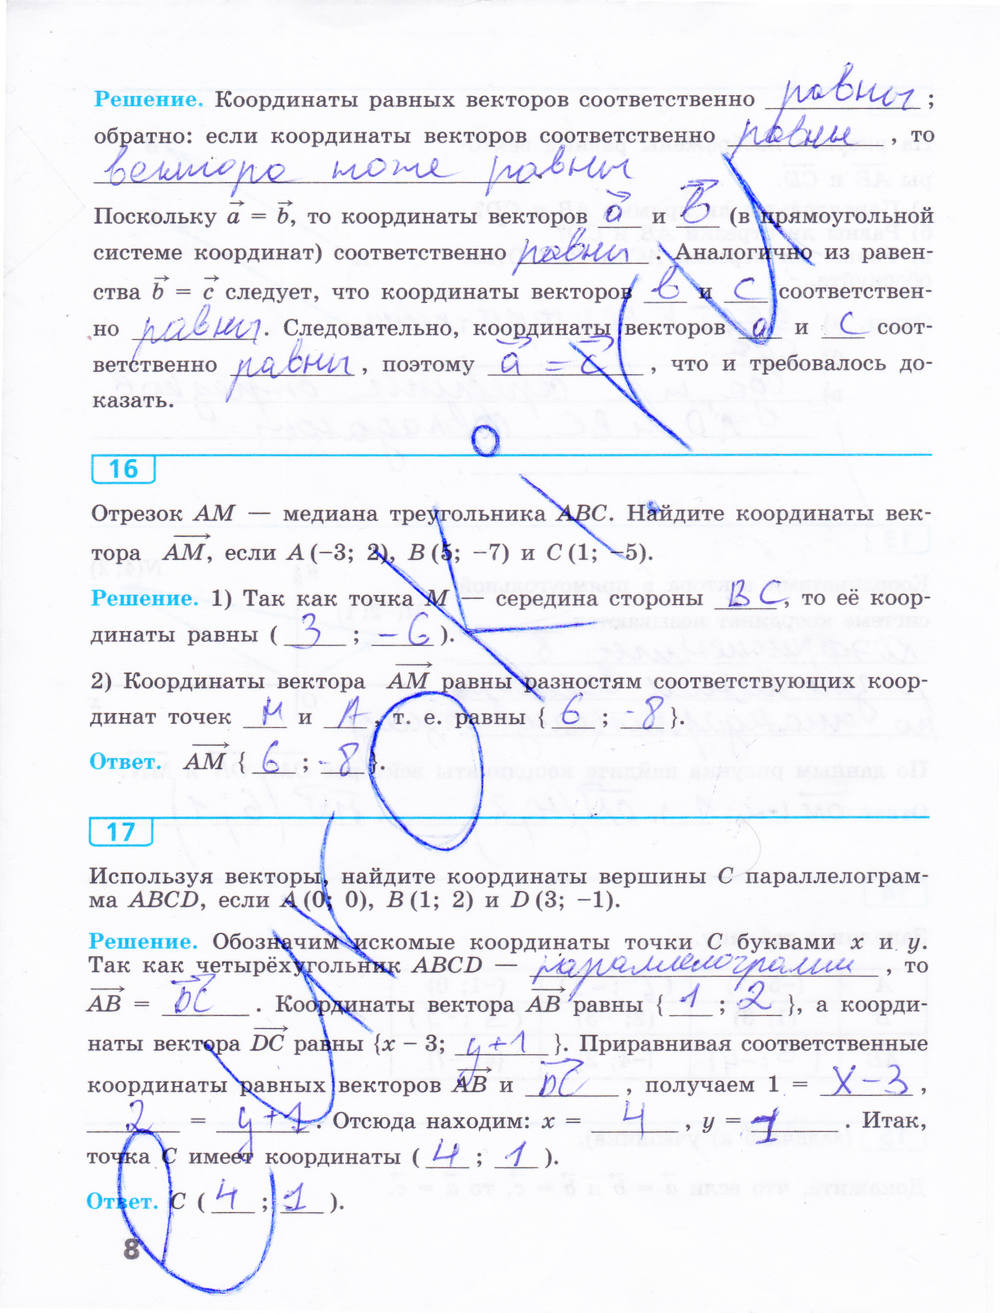 Решение. Координаты равных векторов соответственно равны ;
обратно: если координаты векторов соответственно равны , то
вектора тоже равны
Поскольку a = b, то координаты векторов a и B (в прямоугольной
системе координат) соответственно равны. Аналогично из равен-
ства b = c следует, что координаты векторов в и с соответствен-
но равны. Следовательно, координаты векторов a и c соот-
ветственно равны, поэтому a = c, что и требовалось до-
казать.
16
Отрезок AM — медиана треугольника ABC. Найдите координаты век-
тора AM, если A (−3; 2), B (5; −7) и C (1; −5).
Решение. 1) Так как точка M — середина стороны BC, то её коор-
динаты равны ( 3 ; −6 ).
2) Координаты вектора AM равны разностям соответствующих коор-
динат точек M и A, т. е. равны { 6 ; -8 }.
Ответ. AM { 6 ; -8 }.
17
Используя векторы, найдите координаты вершины C параллелограм-
ма ABCD, если A (0; 0), B (1; 2) и D (3; −1).
Решение. Обозначим искомые координаты точки C буквами x и y.
Так как четырёхугольник ABCD — параллелограмм , то
AB = DC . Координаты вектора AB равны { 1 ; 2 }, а коорди-
наты вектора DC равны {x − 3; y+1 }. Приравнивая соответственные
координаты равных векторов AB и DC , получаем 1 = x−3 ,
2 = y+1 . Отсюда находим: x = 4 , y = 1 . Итак,
точка C имеет координаты ( 4 ; 1 ).
Ответ. C ( 4 ; 1 ).
8